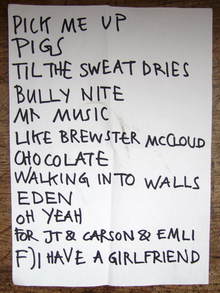 PICK ME UP
PIGS
TIL THE SWEAT DRIES
BULLY NITE
MR MUSIC
LIKE BREWSTER McCLOUD
CHOCOLATE
WALKING INTO WALLS
EDEN
OH YEAH
FOR JT & CARSON & EMLI
F) I HAVE A GIRLFRIEND